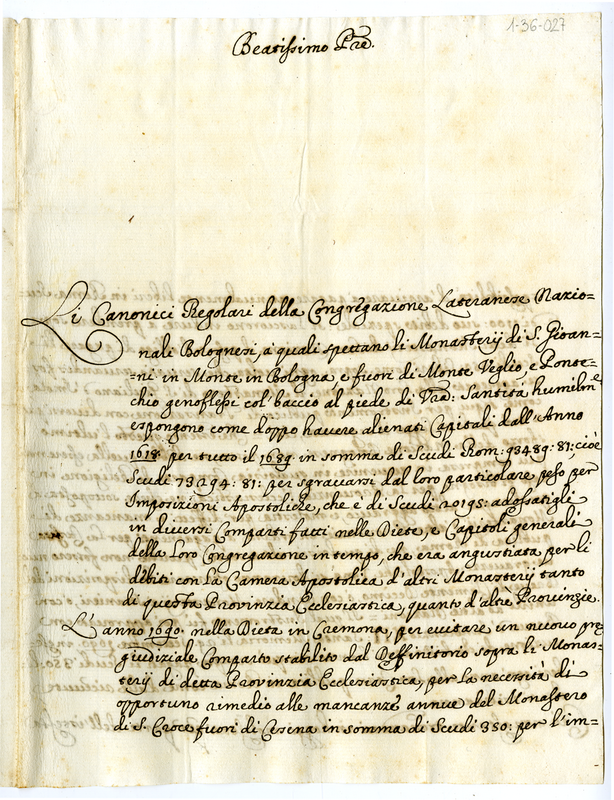 1-36-027
Beatissimo Pre.
Li Canonici Regolari della Congregazione Lateranese Nazio=
nali Bolognesi, a quali spettano li Monasterij di S. Gioan=
=ni in Monte in Bologna, e fuori di Monte Veglio, e Ponte=
chio genoflessi col' baccio al piede di Vra: Santità humilmte
espongono come doppo havere alienati Capitali dall' Anno
1618. per tutto il 1689. in somma di Scudi Rom: 93489: 81: cioè
Scudi 73294: 81: per sgravarsi dal loro particolare peso per
Imposizioni Apostoliche, che è di Scudi 20195: adossatigli
in diversi Comparti fatti nelle Diete, e Capitoli generali
della Loro Congregazione in tempo, che era angustiata per li
debiti con la Camera Apostolica d'altri Monasterij tanto
di questa Provinzia Ecclesiastica, quanto d'altre Provinzie.
L'anno 1690. nella Dieta in Cremona, per evitare un nuovo pre
giudiziale Comparto stabilito dal Deffinitorio sopra li Monas=
terij di detta Provinzia Ecclesiastica, per la necessità di
opportuno rimedio alle mancanze annue del Monastero
di S. Croce fuori di Cesena in somma di Scudi 350: per l'im=